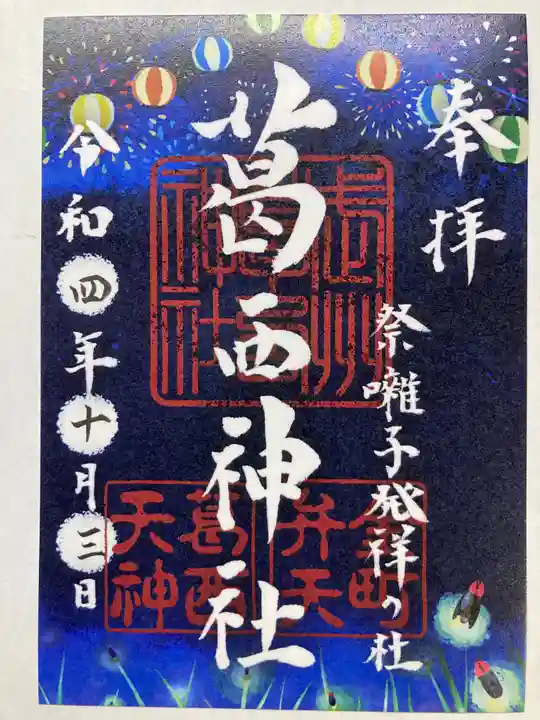 奉拝
祭囃子発祥の社
葛西神社
令和四年十月三日
金町
弁天
葛西
天神